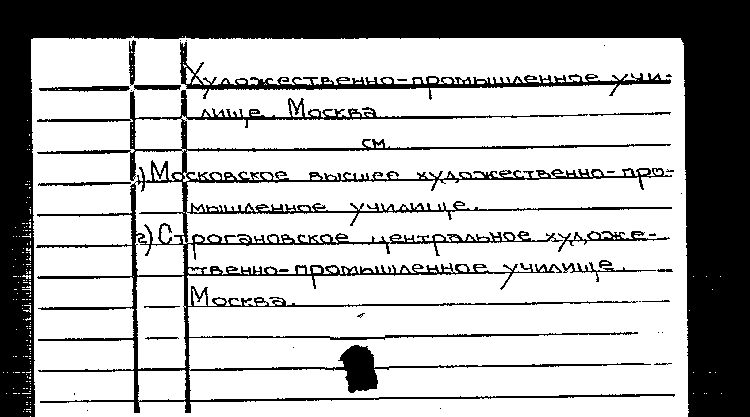 Художественно-промышленное учи-
лище. Москва
см.
1) Московское высшее художественно-про-
мышленное училище.
2) Строгановское центральное художе-
ственно-промышленное училище.
Москва.